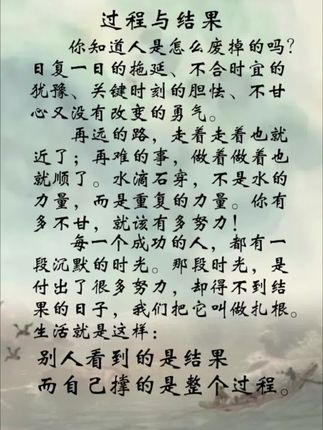 过程与结果
你知道人是怎么废掉的吗?
日复一日的拖延、不合时宜的
犹豫、关键时刻的胆怯、不甘
心又没有改变的勇气。
再远的路,走着走着也就
近了;再难的事,做着做着也
就顺了。水滴石穿,不是水的
力量,而是重复的力量。你有
多不甘,就该有多努力!
每一个成功的人,都有一
段沉默的时光。那段时光,是
付出了很多努力,却得不到结
果的日子,我们把它叫做扎根。
生活就是这样:
别人看到的是结果
而自己撑的是整个过程。